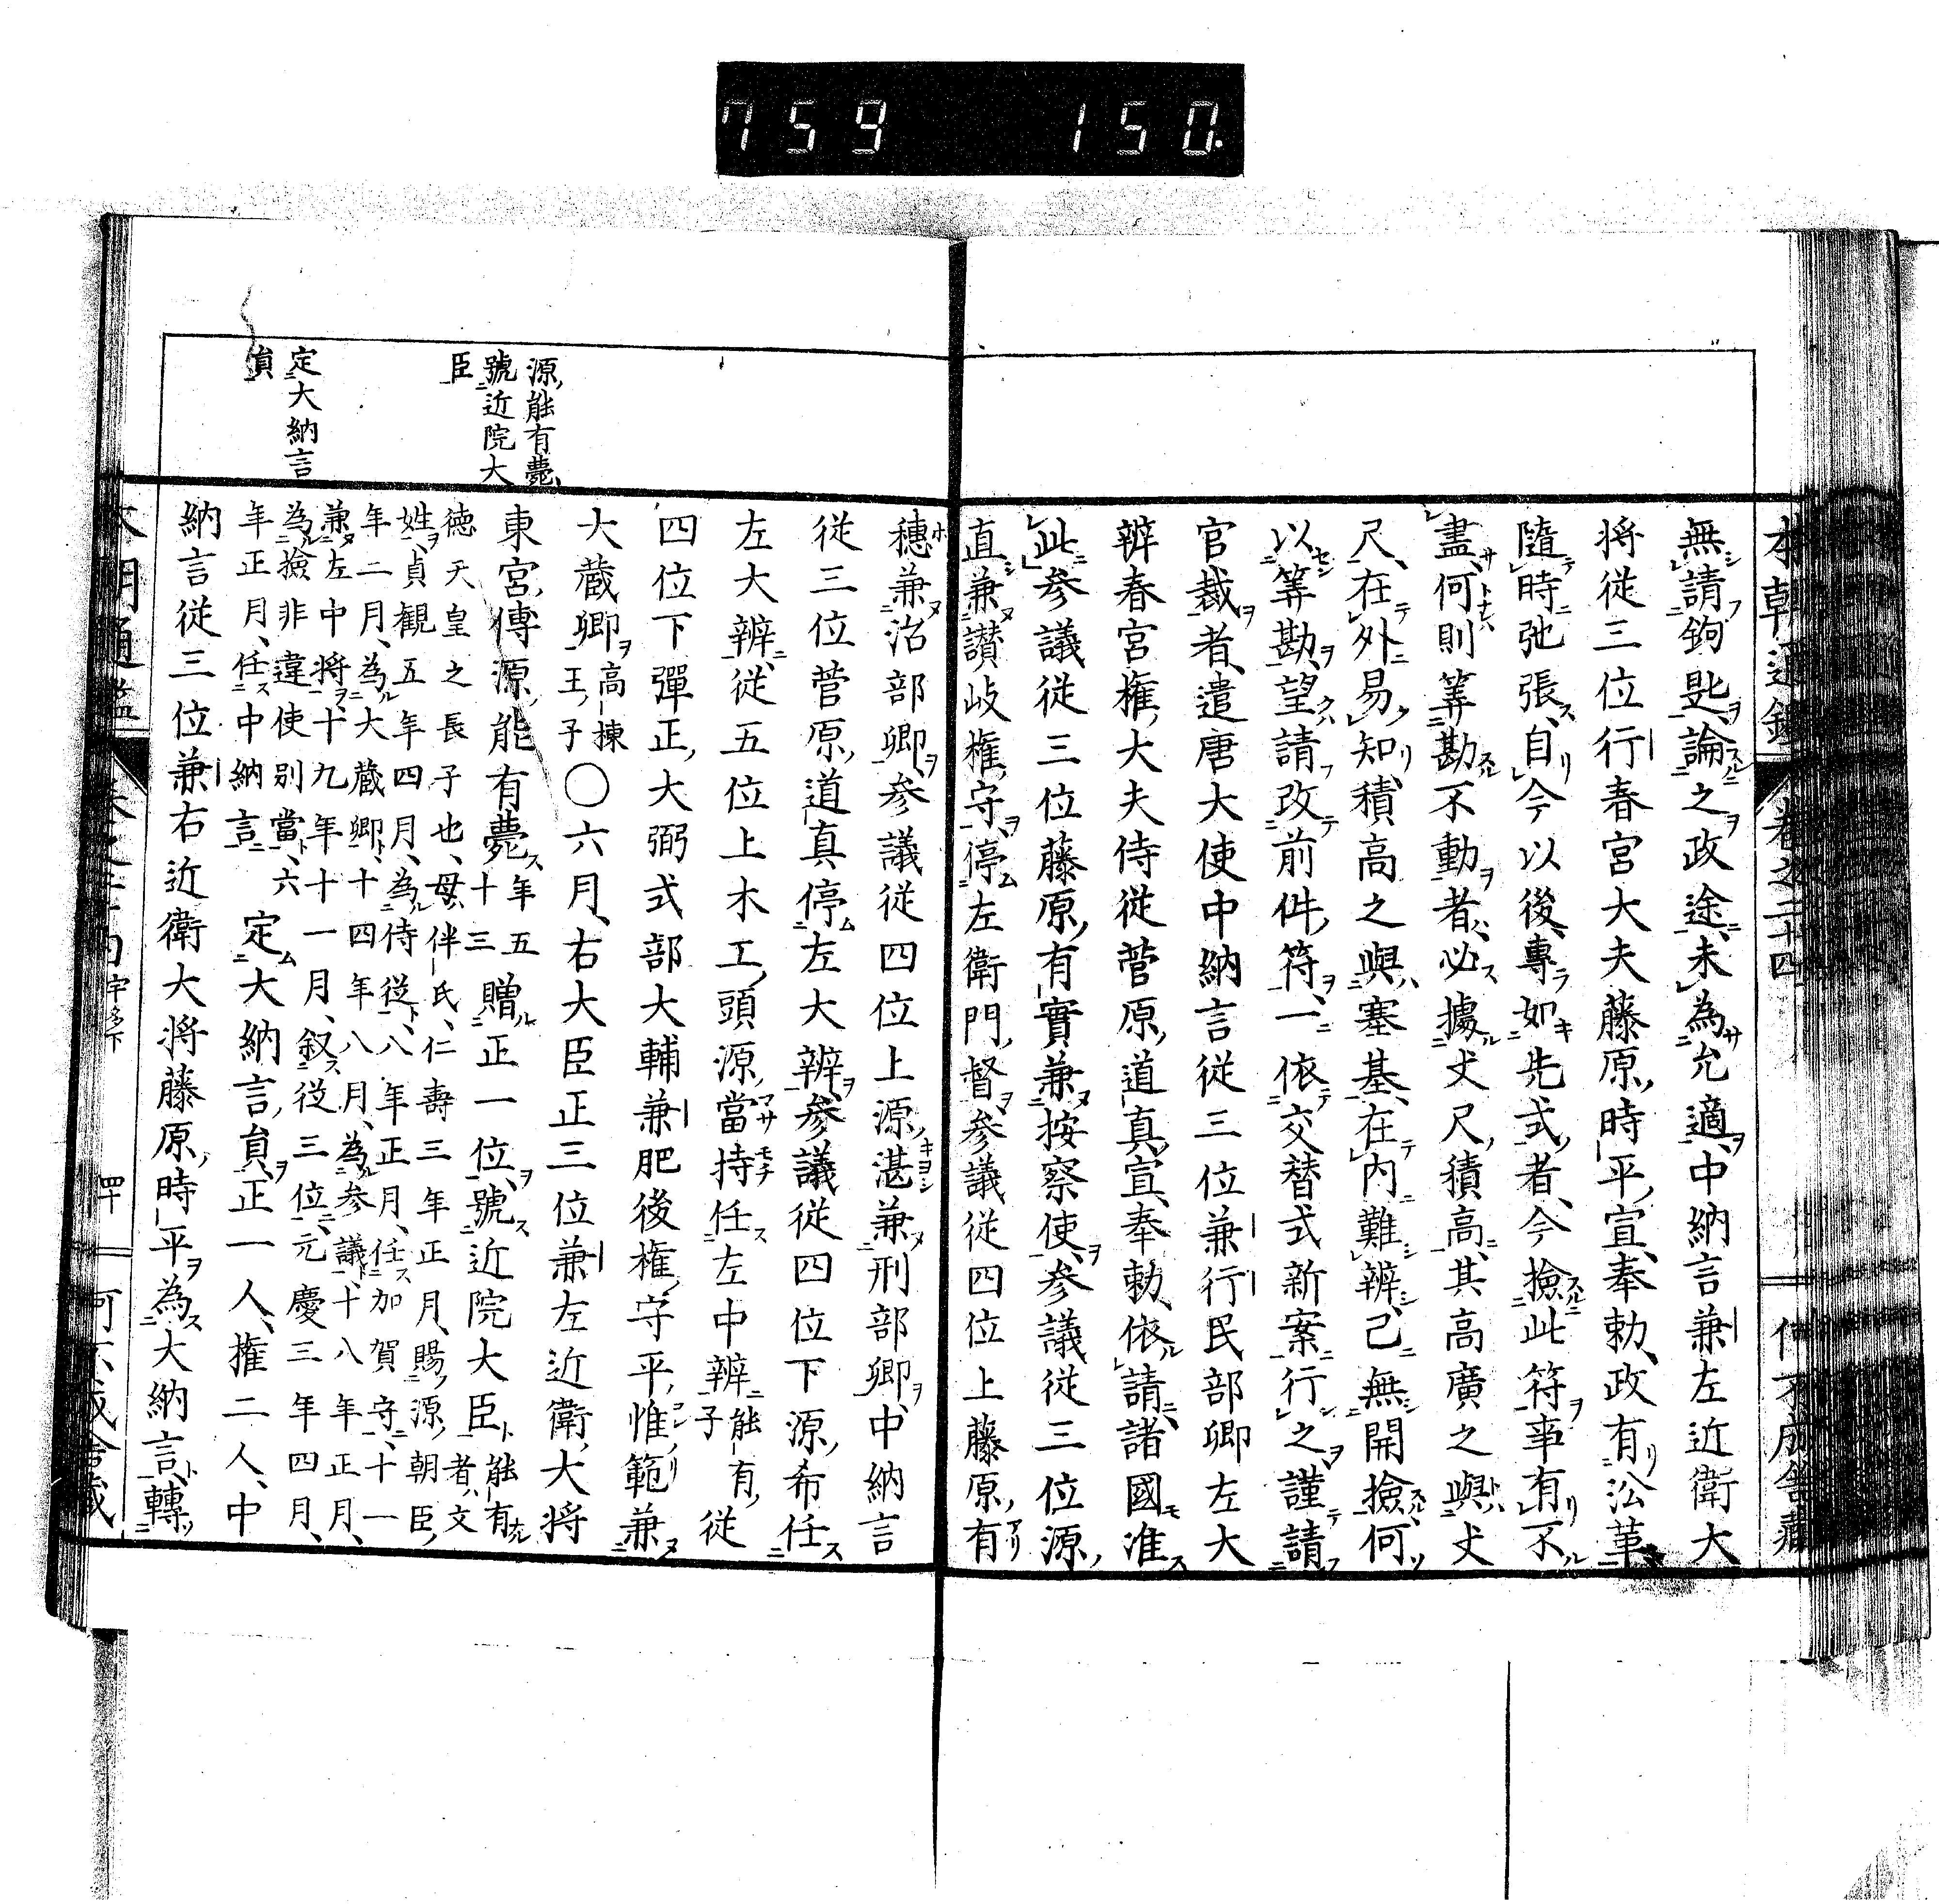 759 150.
本朝通鑑 卷之二十四
無請鉤匙論之政途未為允適中納言兼左近衛大
将從三位行春宮大夫藤原時平宣奉勅政有沿革
隨時弛張自今以後專如先式者今撿此符事有不
盡何則筭勘不動者必據丈尺積高其高廣之與丈
尺在外易知積高之與塞基在内難辨已無開撿何
以筭勘望請改前件符一依交替式新案行之謹請
官裁者遣唐大使中納言從三位兼行民部卿左大
辨春宮權大夫侍從菅原道真宣奉勅依請諸國准
此参議從三位藤原有實兼按察使参議從三位源
直兼讃岐權守停左衛門督参議從四位上藤原有
穂兼治部卿参議從四位上源湛兼刑部卿中納言
從三位菅原道真停左大辨参議從四位下源希任
左大辨從五位上木工頭源當持任左中辨能有子從
四位下彈正大弼式部大輔兼肥後權守平惟範兼
大蔵卿高棟王子〇六月右大臣正三位兼左近衛大将
東宮傅源能有薨年五十三贈正一位號近院大臣能有者文
徳天皇之長子也母伴氏仁壽三年正月賜源朝臣
姓貞觀五年四月為侍從八年正月任加賀守十一
年二月為大蔵卿十四年八月為参議十八年正月
兼左中将十九年十一月叙從三位元慶三年四月
為撿非違使別當六
年正月任中納言 定大納言貟正一人權二人中
納言從三位兼右近衛大将藤原時平為大納言轉
源能有薨
號近院大
臣
定大納言
貟
本朝通鑑 宇多下 四十